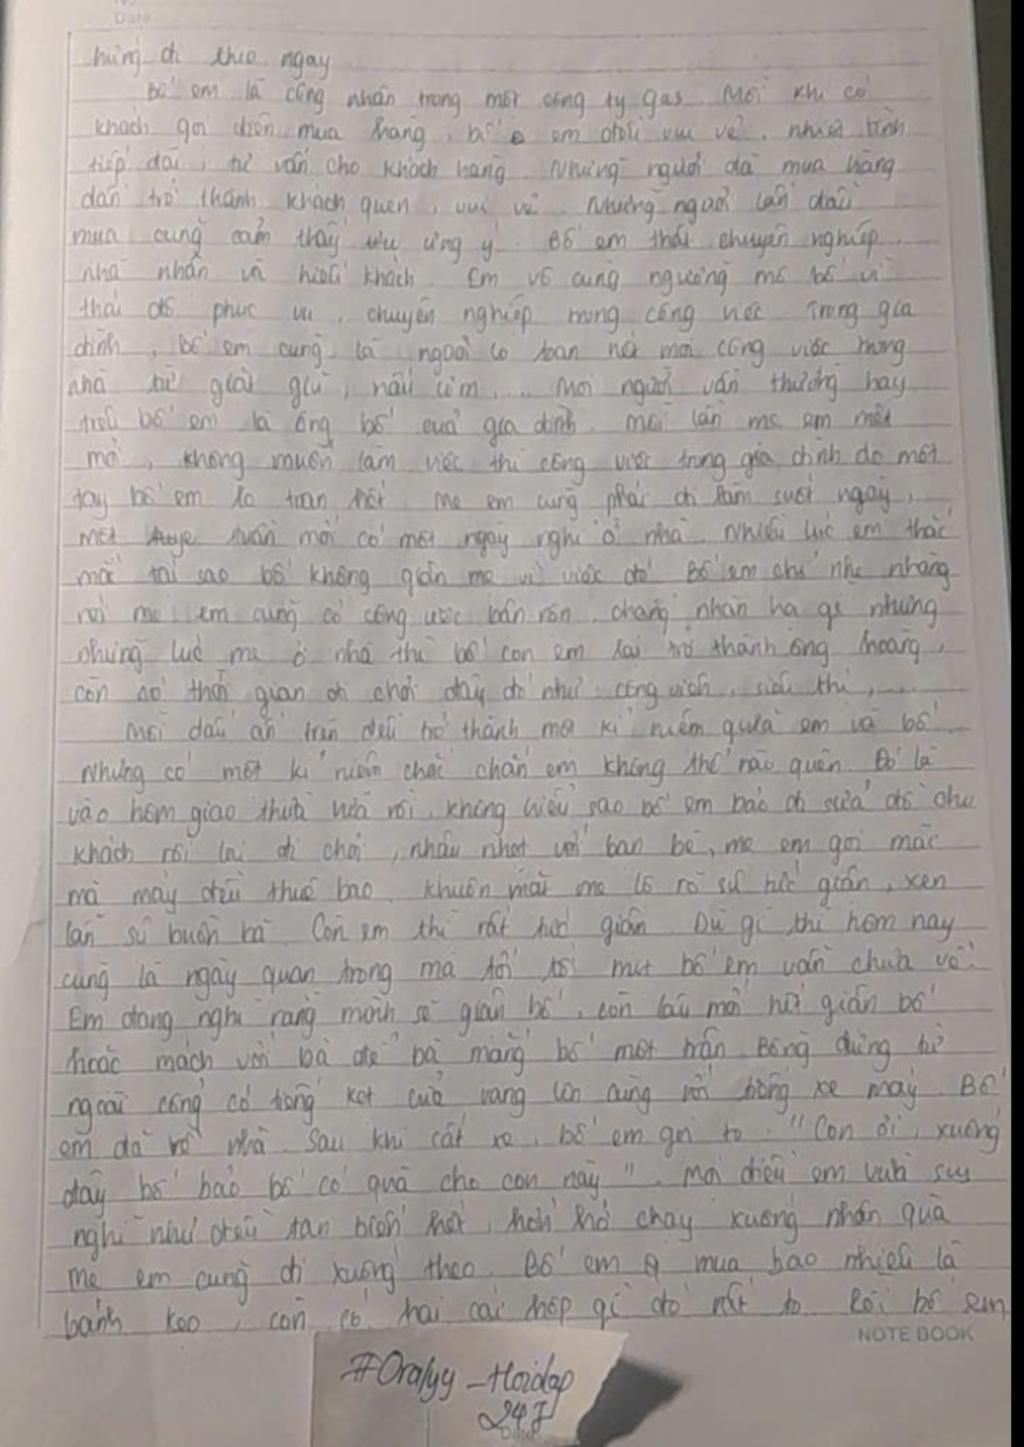 Date
hứng đi theo ngay
Bố em là công nhân trong một công ty gas. Mỗi khi có
khách gọi điện mua hàng, bố em đều vui vẻ, nhiệt tình
tiếp đãi, tư vấn cho khách hàng. Những người đã mua hàng
dần trở thành khách quen, vui vẻ. Những người lần đầu
mua cũng cảm thấy ưng ý. Bố em thật chuyên nghiệp,
nhã nhặn và hiếu khách. Em vô cùng ngưỡng mộ bố vì
thái độ phục vụ, chuyên nghiệp trong công việc. Trong gia
đình, bố em cũng là người lo toan hết mọi công việc trong
nhà từ giặt giũ, nấu cơm,... Mọi người vẫn thường hay
trêu bố em là ông bố của gia đình. Mỗi lần mẹ em mệt
mỏi, không muốn làm việc thì công việc trong gia đình do một
tay bố em lo toan hết. Mẹ em cũng phải đi làm suốt ngày,
một tuần mới có một ngày nghỉ ở nhà. Nhiều lúc em thắc
mắc tại sao bố không giận mẹ vì việc đó. Bố em chỉ nhẹ nhàng
nói mẹ em cũng có công việc bận rộn, chẳng nhàn hạ gì nhưng
những lúc mẹ ở nhà thì bố con em lại trở thành ông hoàng,
còn có thời gian đi chơi đây đó như: công viên, siêu thị,......
Mỗi dấu ấn trên đều trở thành một kỉ niệm giữa em và bố.
Nhưng có một kỉ niệm chắc chắn em không thể nào quên. Đó là
vào hôm giao thừa vừa rồi, không hiểu sao bố em bảo đi sửa đồ cho
khách rồi lại đi chơi, nhậu nhẹt với bạn bè, mẹ em gọi mặc
mà máy đều thuê bao. Khuôn mặt mẹ lộ rõ sự tức giận, xen
lẫn sự buồn bã. Còn em thì rất tức giận. Dù gì thì hôm nay
cũng là ngày quan trọng mà tối mịt bố em vẫn chưa về.
Em đang nghĩ rằng mình sẽ giận bố, còn lâu mới hết giận bố
hoặc mách với bà để bà mắng bố một trận. Bỗng dưng từ
ngoài cổng có tiếng két cửa vang lên cùng với tiếng xe máy. Bố
em đã về nhà. Sau khi cất xe, bố em gọi to: "Con ơi, xuống
đây bố bảo bố có quà cho con này". Mọi điều em vừa suy
nghĩ như đều tan biến hết, hớn hở chạy xuống nhận quà
Mẹ em cũng đi xuống theo. Bố em mua bao nhiêu là
bánh kẹo, còn có hai cái hộp gì đó rất to. Rồi bố em
NOTE BOOK
#Oralyy_Hoidap
247